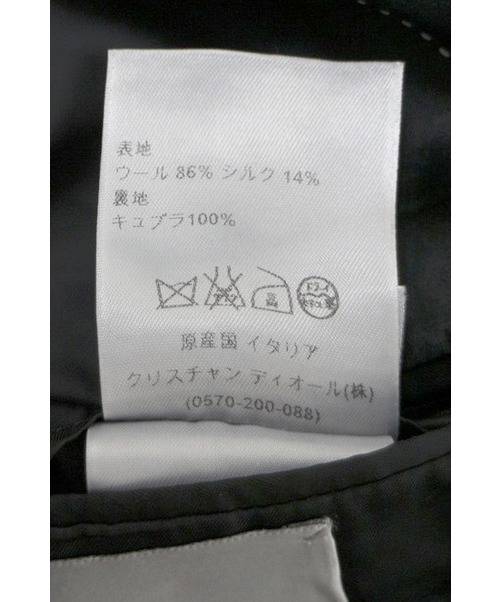 表地
ウール 86% シルク 14%
裏地
キュプラ100%
高 ドライ
原産国 イタリア
クリスチャン ディオール(株)
(0570-200-088)